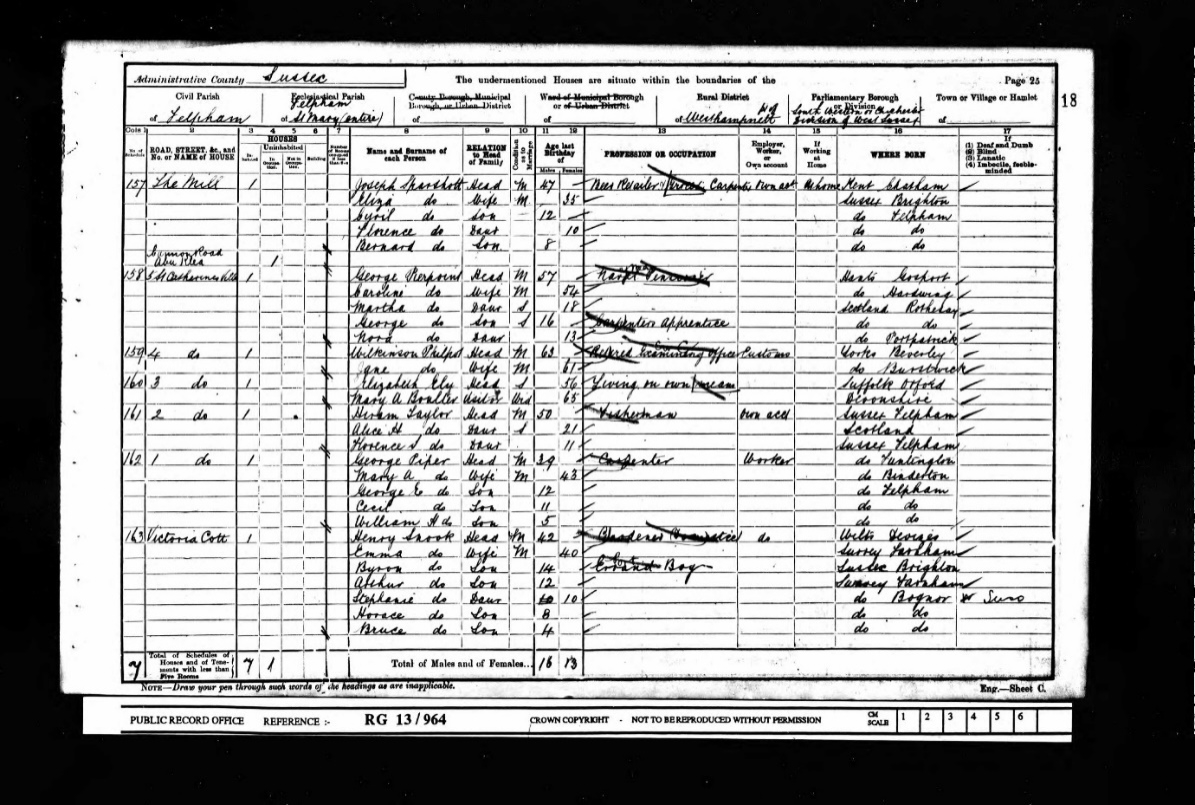 Administrative County Sussex
The undermentioned Houses are situate within the boundaries of the
Page 25
18
Civil Parish
of Felpham
Ecclesiastical Parish
Felpham
of St Mary (entire)
County Borough, Municipal
Borough, or Urban District
of
Ward of Municipal Borough
or of Urban District
of
Rural District
of Westhampnett
Parliamentary Borough
or Division
South Western or Chichester
Division of West Sussex
Town or Village or Hamlet
of
Cols 1 2 3 4 5 6 7 8 9 10 11 12 13 14 15 16 17
No. of Schedule
ROAD, STREET, &c., and No. or NAME of HOUSE
HOUSES
Inhabited
Uninhabited
In Occupation
Not in Occupation
Building
Name and Surname of each Person
RELATION to Head of Family
Condition as to Marriage
Age last Birthday of
Males Females
PROFESSION OR OCCUPATION
Employer, Worker, or Own account
If Working at Home
WHERE BORN
If
(1) Deaf and Dumb
(2) Blind
(3) Lunatic
(4) Imbecile, feeble-minded
157 The Mill 1 Joseph Sparshott Head M 47 Beer Retailer Grocer Carpenter Own act At home Kent Chatham
Eliza do Wife M 35 Sussex Brighton
Cyril do Son 12 do Felpham
Florence do Daur 10 do do
Bernard do Son 8 do do
Road
Abu Klea 1
158 5 St Catherines 1 George Pierpoint Head M 57 Naval Pensioner Hants Gosport
Caroline do Wife M 54 do
Martha do Daur S 18 Scotland Rothesay
George do Son S 16 Carpenters Apprentice do do
do Daur 13 do Portpatrick
159 4 do 1 Wilkinson Philpot Head M 63 Retired Examining Officer Customs Yorks Beverley
Jane do Wife M 61 do Burstwick
160 3 do 1 Elizabeth Ely Head S 56 Living on own means Suffolk Orford
Mary A Visitor Wid 65 Devonshire
161 2 do 1 Hiram Taylor Head M 50 Fisherman Own acct Sussex Felpham
Alice H do Daur S 21 Scotland
Florence S do Daur 11 Sussex Felpham
162 1 do 1 George Piper Head M 39 Carpenter Worker do Funtington
Mary A do Wife M 43 do Binderton
George E do Son 12 do Felpham
Cecil do Son 11 do do
William H do Son 5 do do
163 Victoria Cott 1 Henry Snook Head M 42 Gardener Domestic do Wilts Devizes
Emma do Wife M 40 Surrey Farnham
Byron do Son 14 Errand Boy Sussex Brighton
Arthur do Son 12 Surrey Farnham
Stephanie do Daur 10 do Bognor
Horace do Son 8 do do
Bruce do Son 4 do do
7
Total of Schedules of Houses and of Tenements with less than Five Rooms
7 1
Total of Males and of Females... 16 13
NOTE—Draw your pen through such words of the headings as are inapplicable.
Eng.—Sheet C.
PUBLIC RECORD OFFICE REFERENCE :- RG 13/964
CROWN COPYRIGHT - NOT TO BE REPRODUCED WITHOUT PERMISSION
CM SCALE 1 2 3 4 5 6